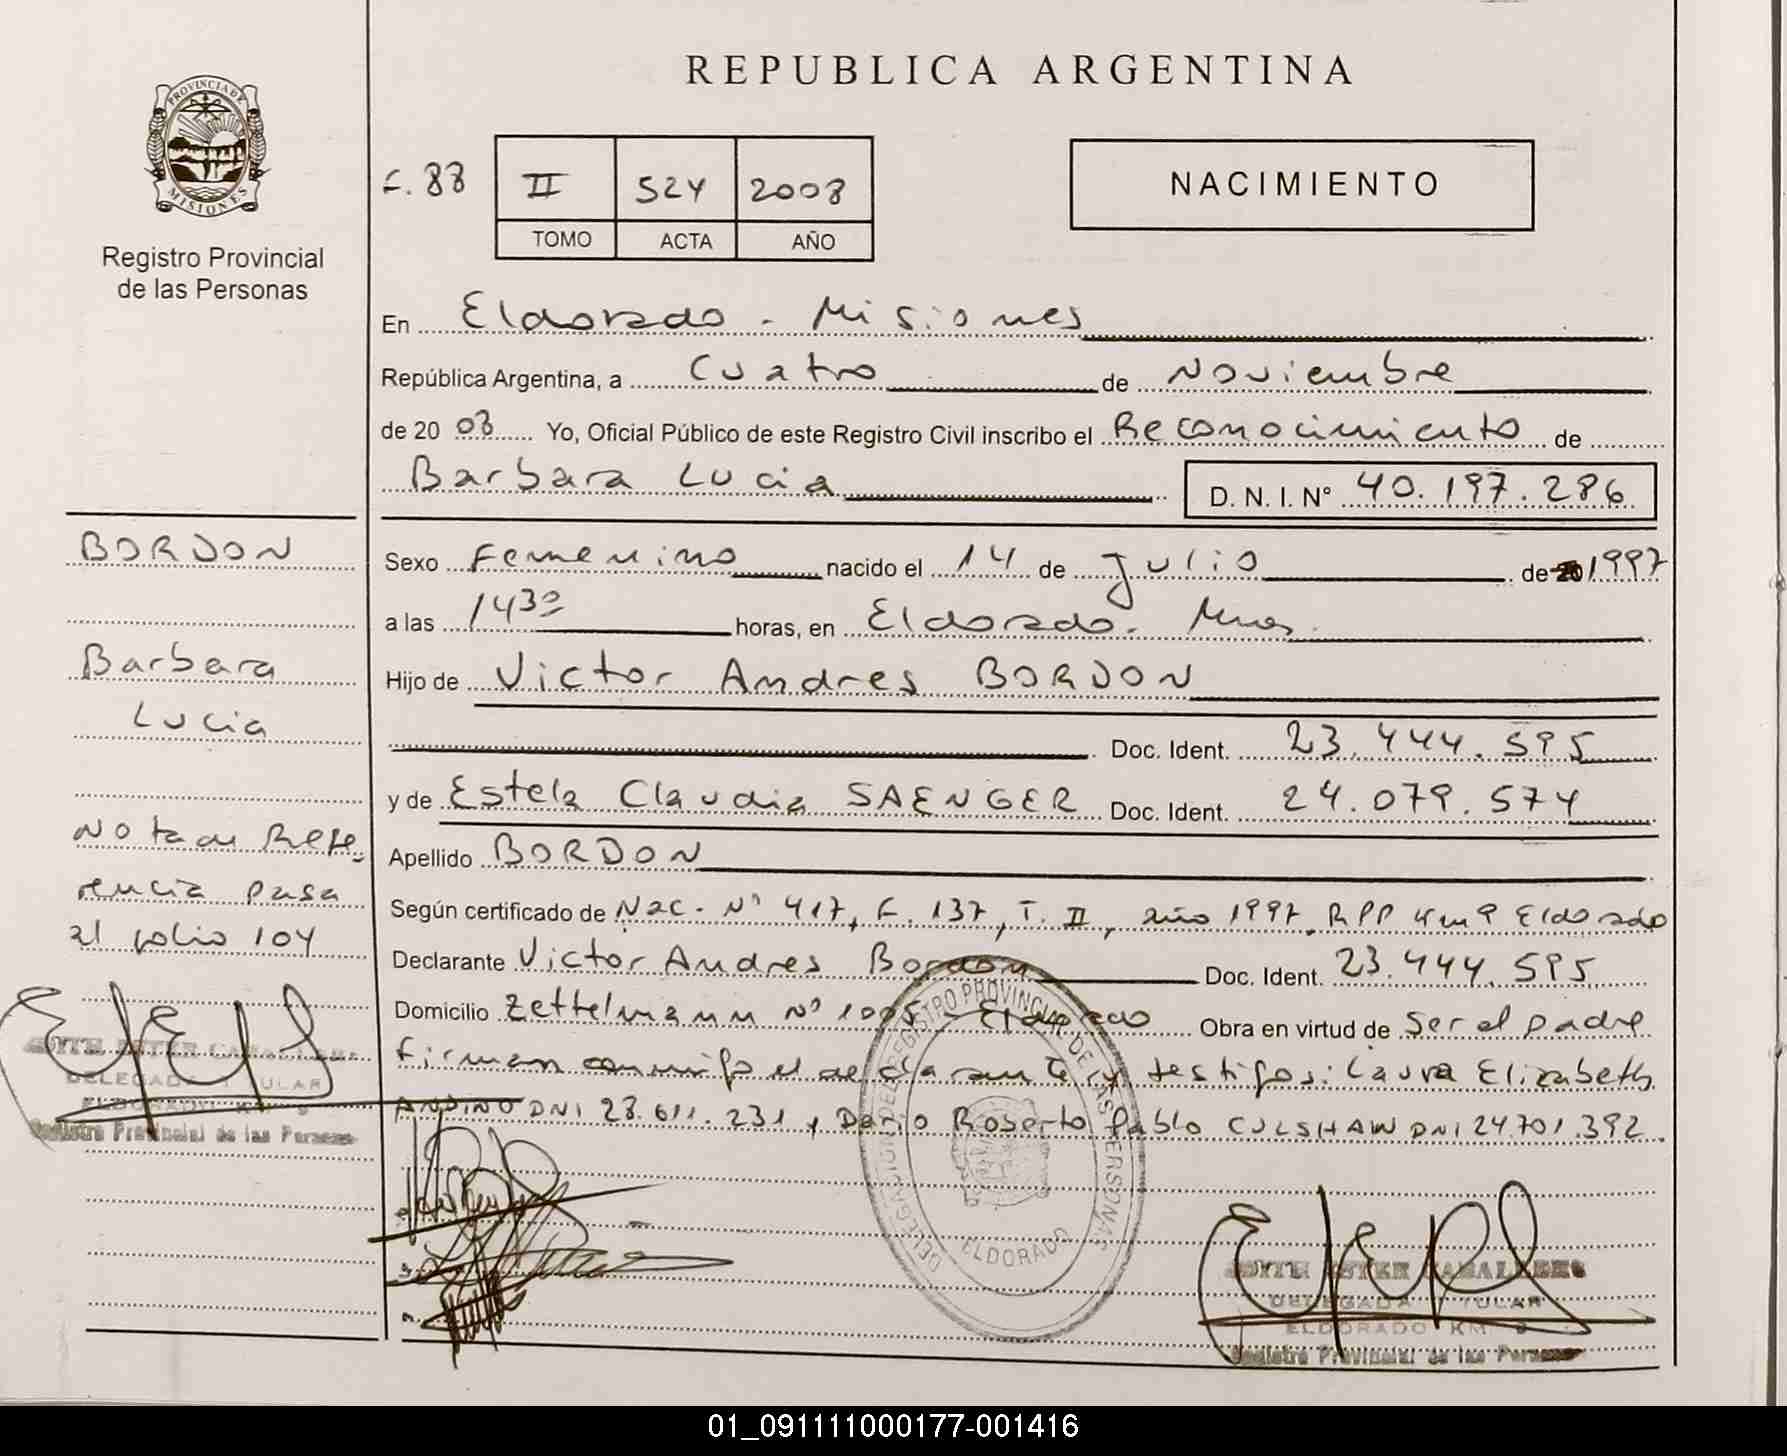 REPUBLICA ARGENTINA
PROVINCIA DE
MISIONES
Registro Provincial
de las Personas
F. 88
II 524 2008
TOMO ACTA AÑO
NACIMIENTO
En Eldorado - Misiones
República Argentina, a Cuatro de Noviembre
de 20 08 Yo, Oficial Público de este Registro Civil inscribo el Reconocimiento de
Barbara Lucia D. N. I. N° 40.197.286
Sexo Femenino nacido el 14 de Julio de 20 1997
a las 14 30 horas, en Eldorado. Mnes.
Hijo de Victor Andres BORDON
Doc. Ident. 23.444.595
y de Estela Claudia SAENGER Doc. Ident. 24.079.574
Apellido BORDON
Según certificado de Nac. N° 417, F. 137, T. II, año 1997, RPP Km 9 Eldorado
Declarante Victor Andres Bordon Doc. Ident. 23.444.595
Domicilio Zettelmann N° 1005 - Eldorado Obra en virtud de ser el padre
Firman conmigo el declarante y testigos: Laura Elizabeth
ANDINO DNI 28.611.231 y Dario Roberto Pablo CULSHAW DNI 24.701.392
BORDON
Barbara
Lucia
Nota de Refe-
rencia pasa
al folio 104
EDITH ESTER CABALLERO
DELEGADA TITULAR
ELDORADO KM 9
Registro Provincial de las Personas
DELEGACION DE REGISTRO PROVINCIAL DE LAS PERSONAS
ELDORADO
EDITH ESTER CABALLERO
DELEGADA TITULAR
ELDORADO KM 9
Registro Provincial de las Personas
01_091111000177-001416